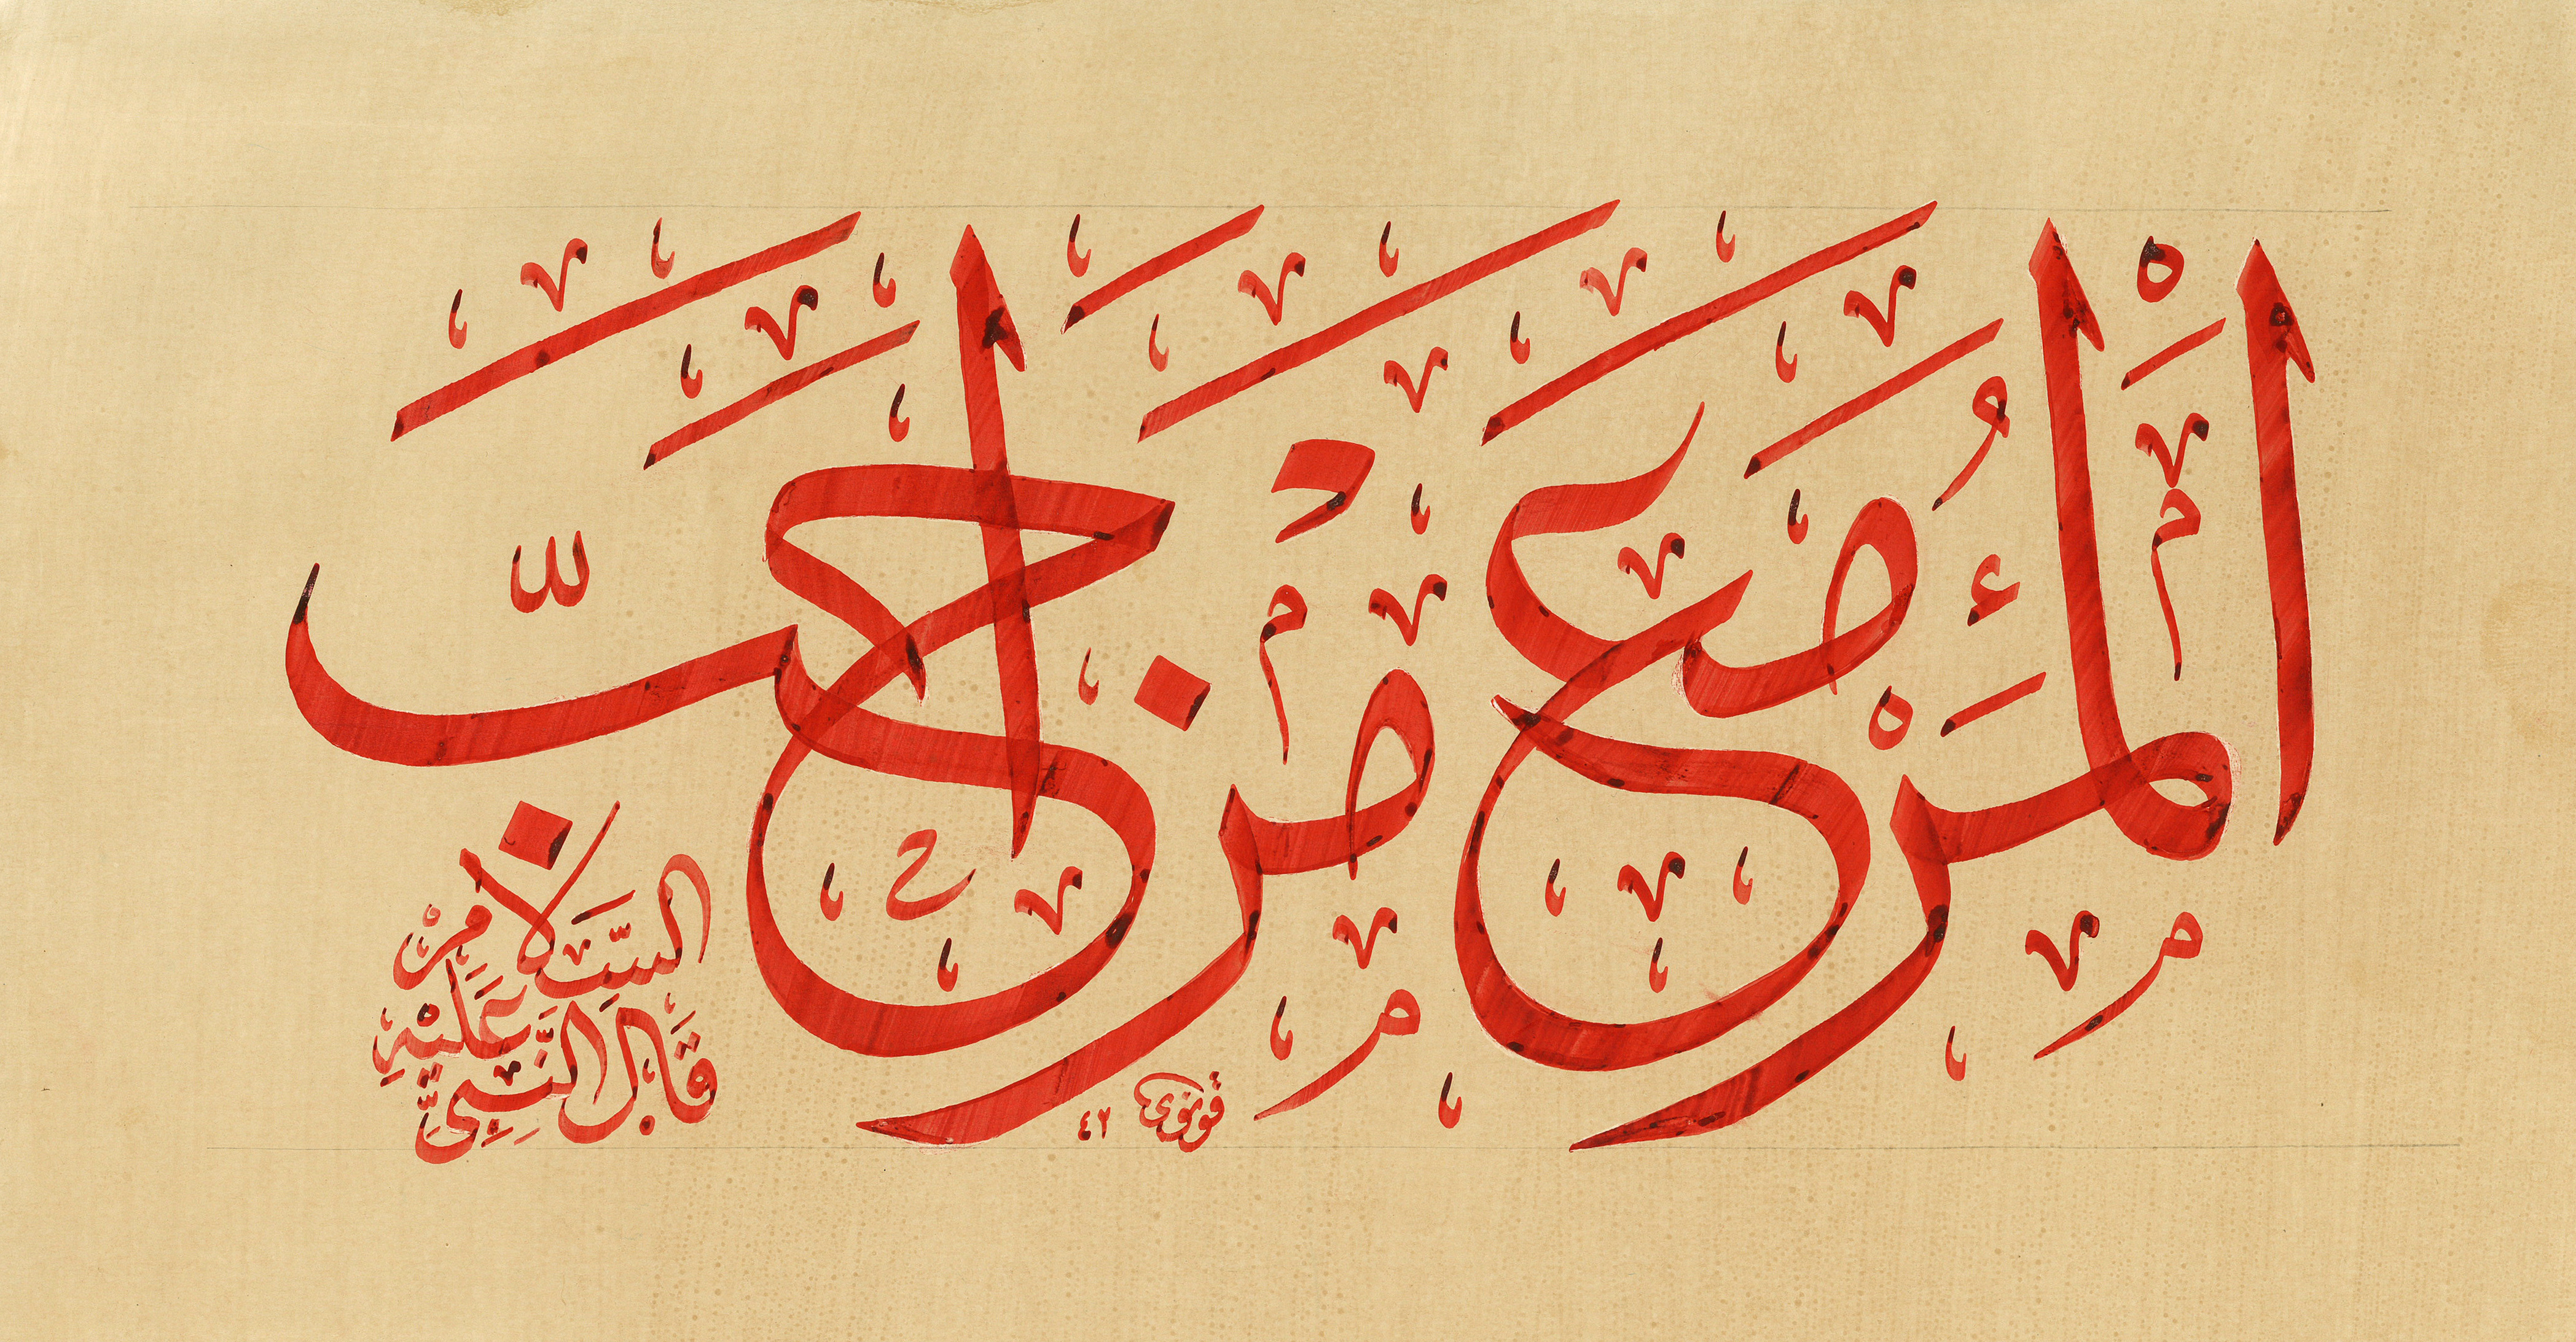 اَلْمَرْءُ مَعَ مَنْ اَحَبَّ
قَالَ النَّبِيُّ عَلَيْهِ السَّلَامُ
قونوى ٤٢